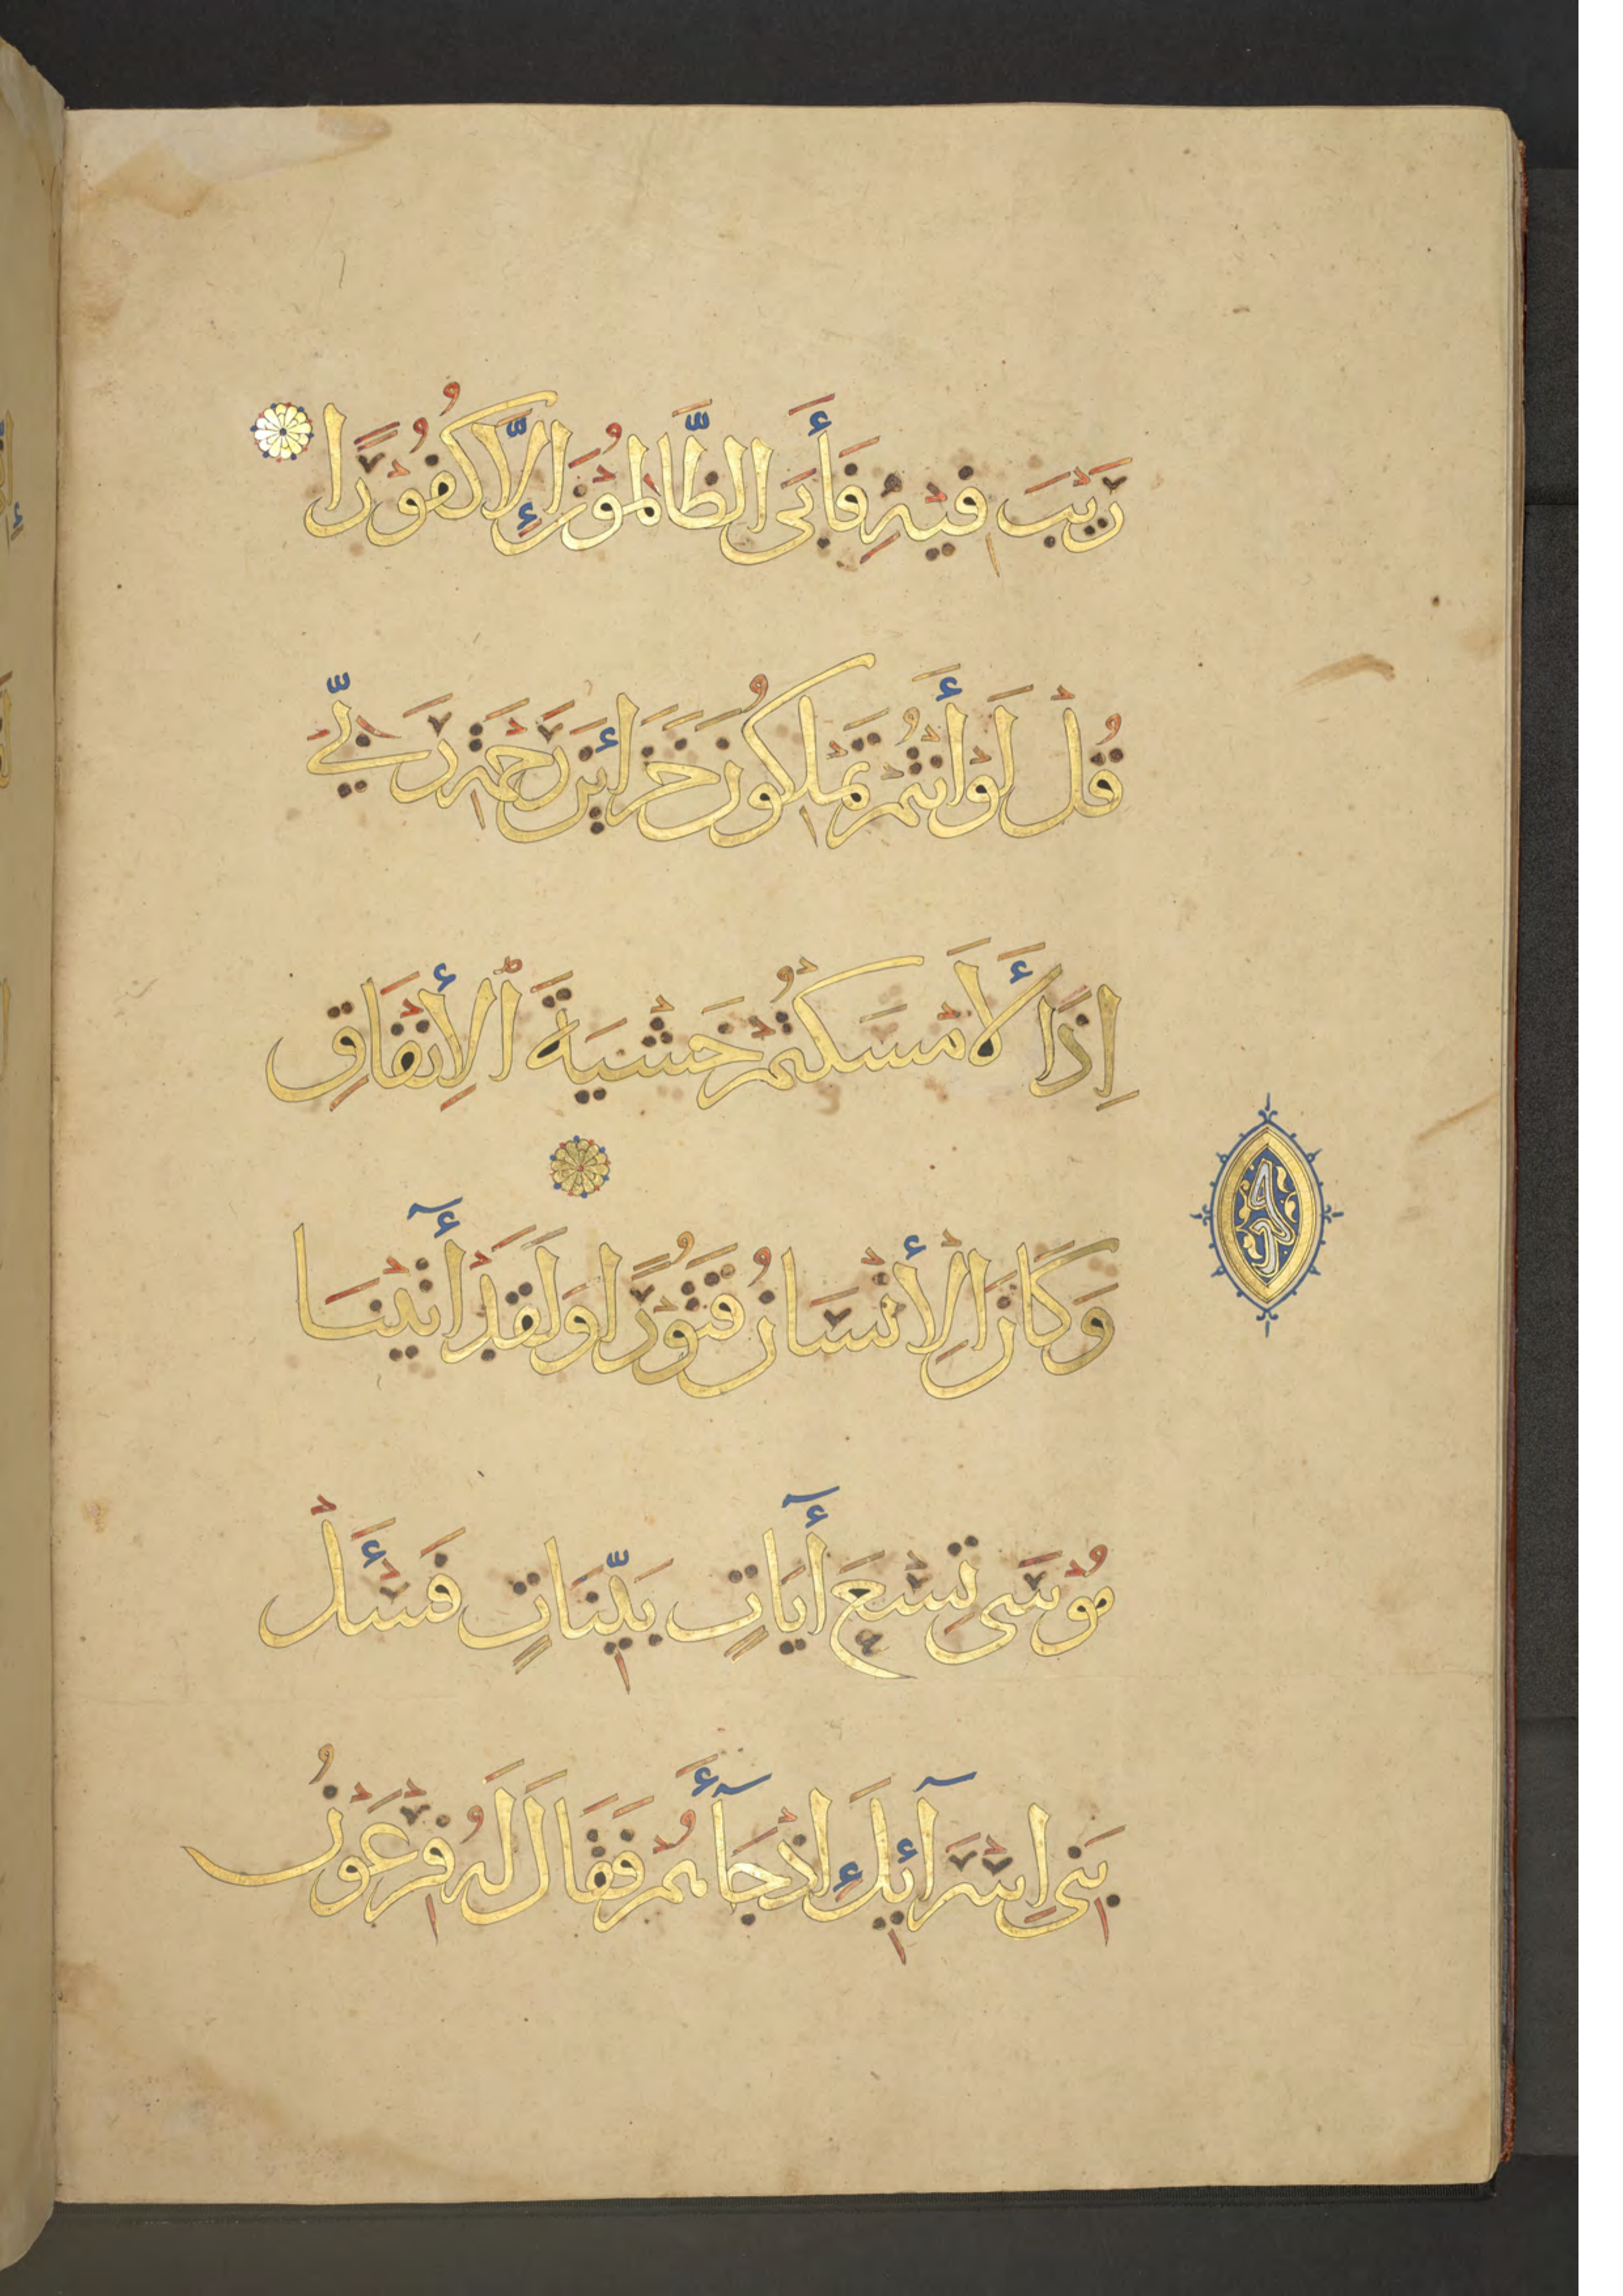 رَيْبَ فِيْهِ فَأَبَى الظَّالِمُوْنَ إِلَّا كُفُوْرًا
قُلْ لَوْ أَنْتُمْ تَمْلِكُونَ خَزَائِنَ رَحْمَةِ رَبِّي
اِذًا لَأَمْسَكْتُمْ خَشْيَةَ ٱلْأِنْفَاقِ
وَكَانَ الْأِنْسَانُ قَتُوْرًا وَلَقَدْ أٓتَيْنَا
مُوْسَى تِسْعَ أٓيَاتٍ بَيِّنَاتٍ فَسْـَٔلْ
بَنِي اِسْرَآئِيلَ إِذْ جَآءَهُمْ فَقَالَ لَهُ فِرْعَوْنُ